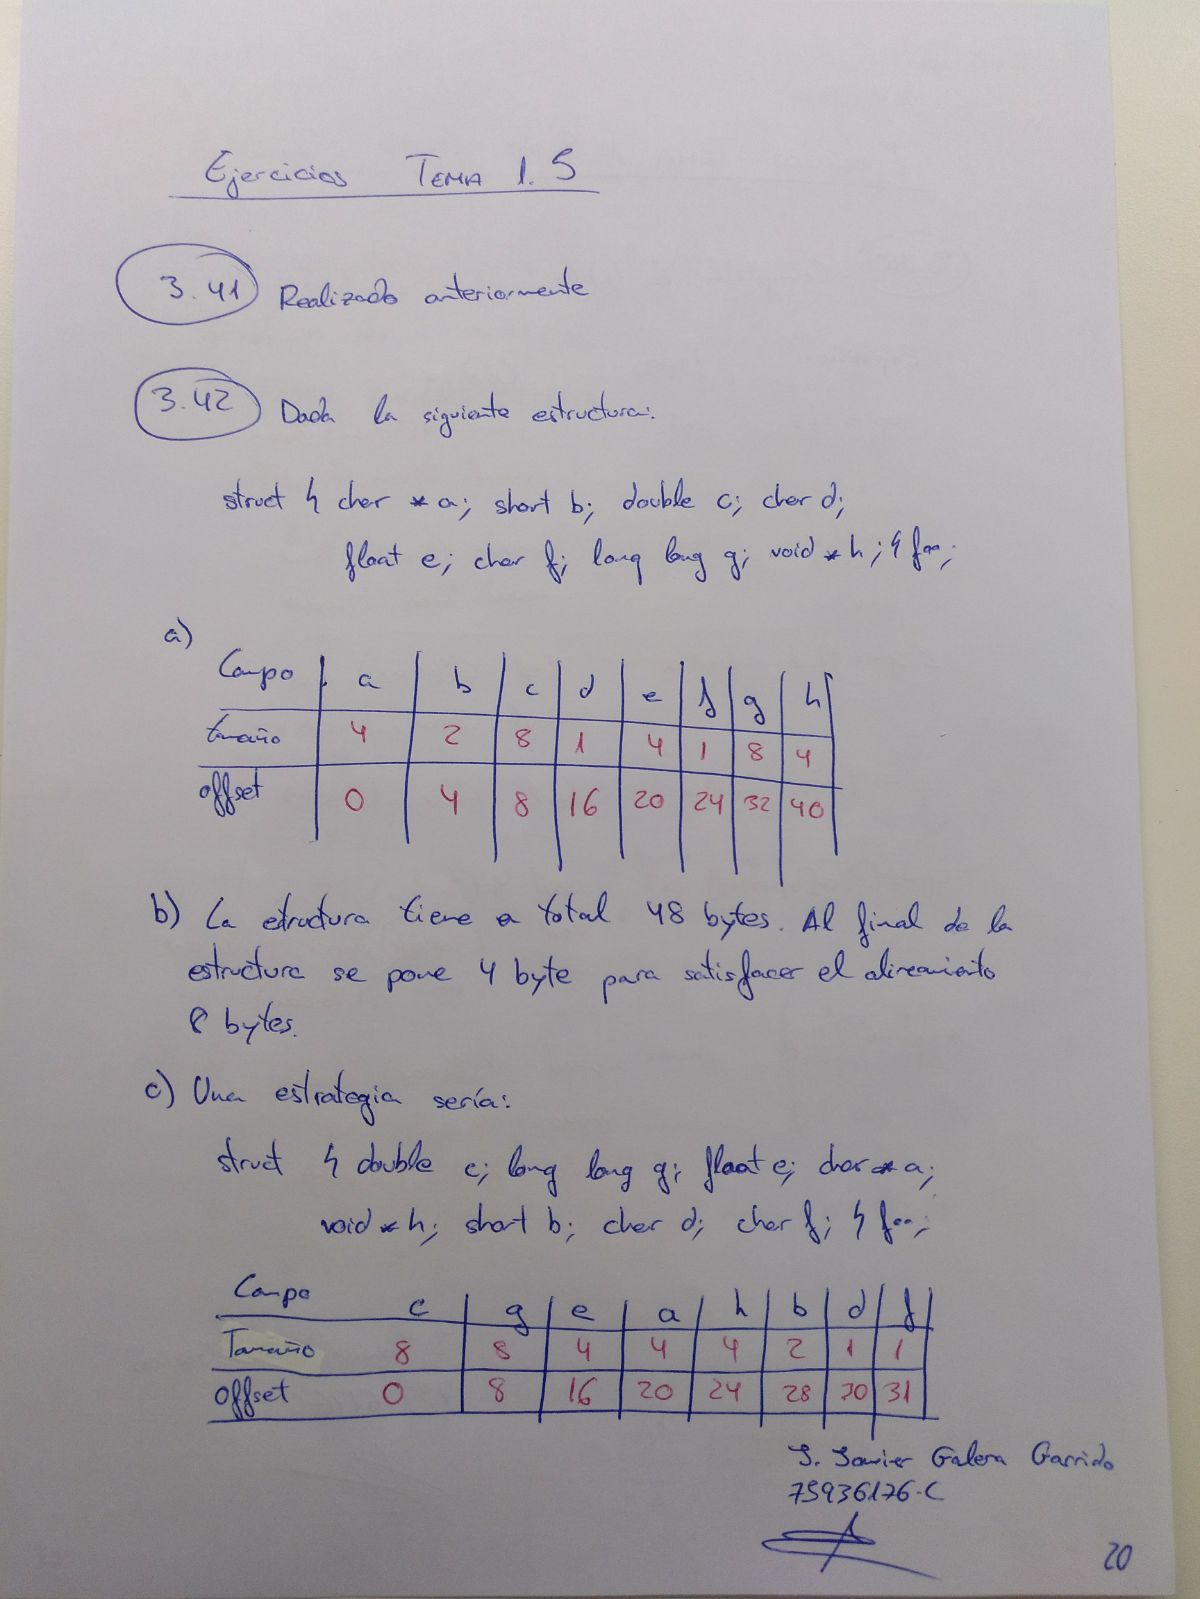 Ejercicios Tema 1.5
3.41 Realizado anteriormente
3.42 Dada la siguiente estructura:
struct { char *a; short b; double c; char d;
float e; char f; long long g; void *h; } foo;
a)
Campo a b c d e f g h
tamaño 4 2 8 1 4 1 8 4
offset 0 4 8 16 20 24 32 40
b) La etructura tiene a total 48 bytes. Al final de la
estructura se pone 4 byte para satisfacer el alineamiento
8 bytes.
c) Una estrategia sería:
struct { double c; long long g; float e; char *a;
void *h; short b; char d; char f; } foo;
Campo c g e a h b d f
Tamaño 8 8 4 4 4 2 1 1
offset 0 8 16 20 24 28 30 31
J. Javier Galera Garrido
75936176-C
20